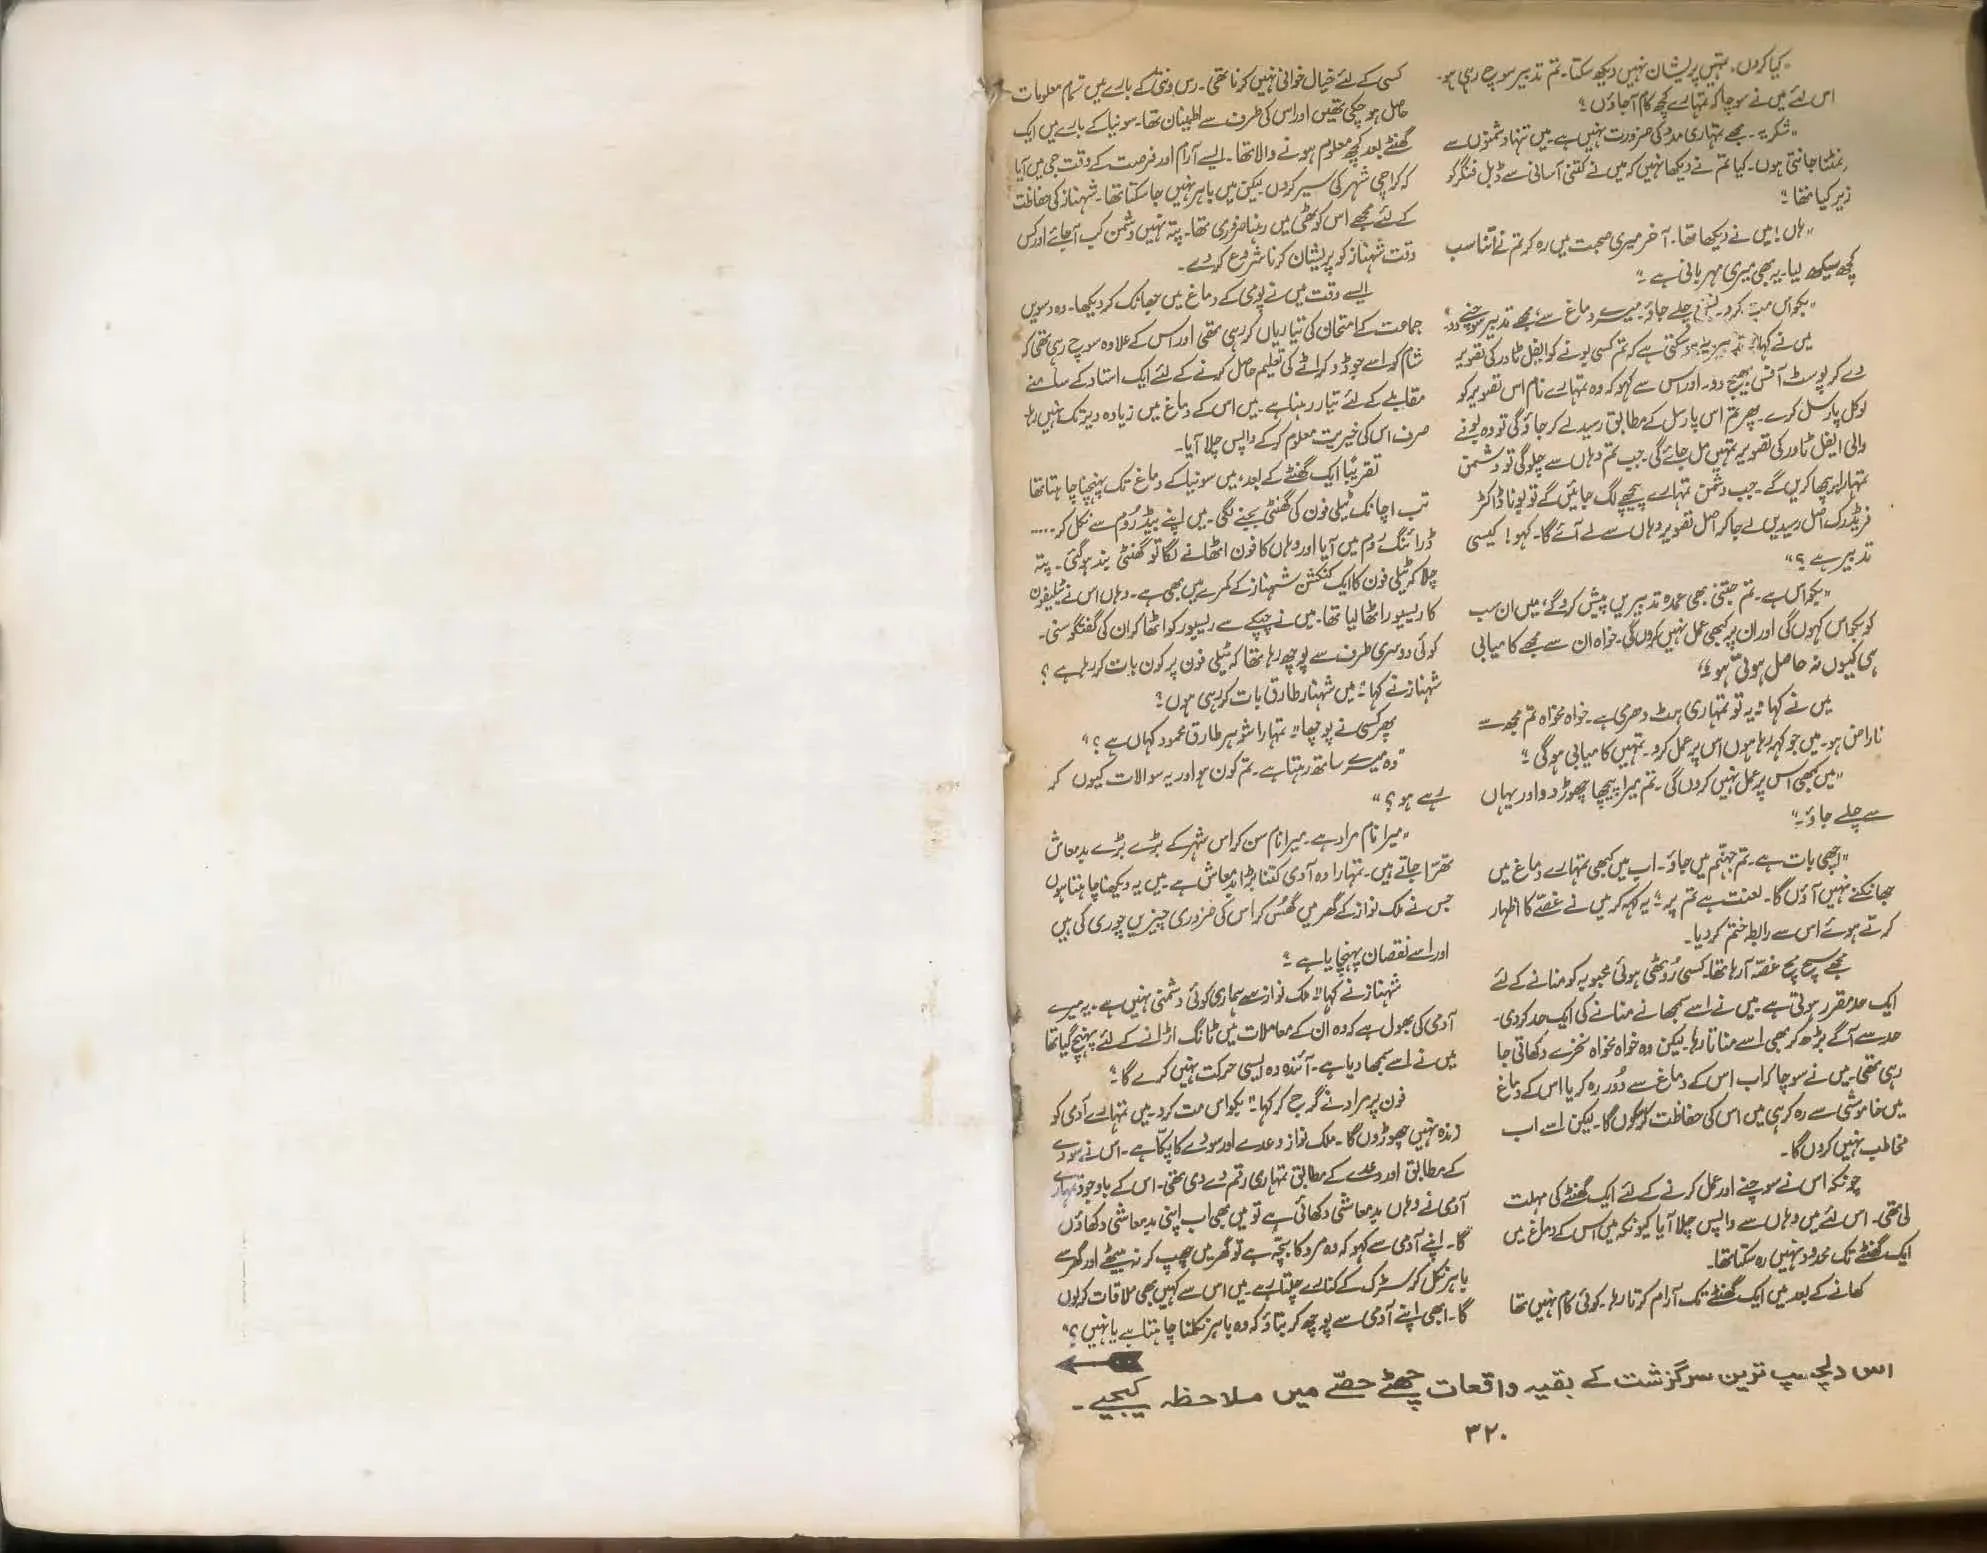 "کیا کروں، تمہیں پریشان نہیں دیکھ سکتا۔ تم تدبیر سوچ رہی ہو۔
اس لئے میں نے سوچا کہ تمہارے کچھ کام آجاؤں؟
"شکریہ۔ مجھے تمہاری مدد کی ضرورت نہیں ہے۔ میں تنہا دشمنوں سے
نمٹنا جانتی ہوں۔ کیا تم نے دیکھا نہیں کہ میں نے کتنی آسانی سے ڈبل فنگر کو
زیر کیا تھا؟
"ہاں! میں نے دیکھا تھا۔ آخر میری صحبت میں رہ کر تم نے اتنا سب
کچھ سیکھ لیا۔ یہ بھی میری مہربانی ہے۔"
"بکواس مت کرو۔ چلے جاؤ۔ میرے دماغ سے، مجھے تدبیر سوچنے دو۔
میں نے کہا ہو سکتی ہے کہ تم کسی بونے کو ایفل ٹاور کی تصویر
دے کر پوسٹ آفس بھیج دو۔ اور اس سے کہو کہ وہ تمہارے نام اس تصویر کو
لوکل پارسل کرے۔ پھر تم اس پارسل کے مطابق رسید لے کر جاؤ گی تو وہ بونے
والی ایفل ٹاور کی تصویر تمہیں مل جائے گی۔ جب تم وہاں سے چلو گی تو دشمن
تمہارا پیچھا کریں گے۔ جب دشمن تمہارے پیچھے لگ جائیں گے تو بونا ڈاکٹر
فریڈرک اصل رسیدیں لے جا کر اصل تصویر وہاں سے لے آئے گا۔ کہو! کیسی
تدبیر ہے؟"
"بکواس ہے۔ تم جتنی بھی عمدہ تدبیریں پیش کرو گے، میں ان سب
کو بکواس کہوں گی اور ان پر کبھی عمل نہیں کروں گی۔ خواہ ان سے مجھے کامیابی
ہی کیوں نہ حاصل ہوتی ہو؟"
میں نے کہا: "یہ تو تمہاری ہٹ دھرمی ہے۔ خواہ مخواہ تم مجھ سے
ناراض ہو۔ میں جو کہہ رہا ہوں اس پر عمل کرو۔ تمہیں کامیابی ہوگی؟
"میں کبھی اس پر عمل نہیں کروں گی۔ تم میرا پیچھا چھوڑ دو اور یہاں
سے چلے جاؤ۔"
"اچھی بات ہے۔ تم جہنّم میں جاؤ۔ اب میں کبھی تمہارے دماغ میں
جھانکنے نہیں آؤں گا۔ لعنت ہے تم پر؛ یہ کہہ کر میں نے غصّے کا اظہار
کرتے ہوئے اس سے رابطہ ختم کر دیا۔
مجھے سچ مچ غصّہ آ رہا تھا۔ کسی رُوٹھی ہوئی محبوبہ کو منانے کے لئے
ایک حد مقرر ہوتی ہے۔ میں نے اسے سمجھانے منانے کی ایک حد کر دی۔
حد سے آگے بڑھ کر بھی اسے مناتا رہا۔ لیکن وہ خواہ مخواہ نخرے دکھاتی جا
رہی تھی۔ میں نے سوچا کہ اب اس کے دماغ سے دُور رہ کر یا اس کے دماغ
میں خاموشی سے رہ کر ہی میں اس کی حفاظت کروں گا۔ لیکن اسے اب
مخاطب نہیں کروں گا۔
چونکہ اس نے سوچنے اور عمل کرنے کے لئے ایک گھنٹے کی مہلت
لی تھی۔ اس لئے میں وہاں سے واپس چلا آیا کیونکہ میں اس کے دماغ میں
ایک گھنٹے تک محدود نہیں رہ سکتا تھا۔
کھانے کے بعد میں ایک گھنٹے تک آرام کرتا رہا۔ کوئی کام نہیں تھا
کسی کے لئے خیال خوانی نہیں کرنا تھی۔ رس ونتی کے بارے میں تمام معلومات
حاصل ہو چکی تھیں اور اس کی طرف سے اطمینان تھا۔ سونیا کے بارے میں ایک
گھنٹے بعد کچھ معلوم ہونے والا تھا۔ ایسے آرام اور فرصت کے وقت جی میں آیا
کہ کراچی شہر کی سیر کروں لیکن میں باہر نہیں جا سکتا تھا۔ شہناز کی حفاظت
کے لئے مجھے اس کوٹھی میں رہنا ضروری تھا۔ پتہ نہیں دشمن کب آ جائے اور کس
وقت شہناز کو پریشان کرنا شروع کر دے۔
ایسے وقت میں نے پومی کے دماغ میں جھانک کر دیکھا۔ وہ دسویں
جماعت کے امتحان کی تیاریاں کر رہی تھی اور اس کے علاوہ سوچ رہی تھی کہ
شام کو اسے جوڈو کراٹے کی تعلیم حاصل کرنے کے لئے ایک استاد کے سامنے
مقابلے کے لئے تیار رہنا ہے۔ میں اس کے دماغ میں زیادہ دیر تک نہیں رہا
صرف اس کی خیریت معلوم کر کے واپس چلا آیا۔
تقریباً ایک گھنٹے کے بعد، میں سونیا کے دماغ تک پہنچنا چاہتا تھا
تب اچانک ٹیلی فون کی گھنٹی بجنے لگی۔ میں اپنے بیڈ رُوم سے نکل کر.....
ڈرائنگ رُوم میں آیا اور وہاں کا فون اٹھانے لگا تو گھنٹی بند ہو گئی۔ پتہ
چلا کہ ٹیلی فون کا ایک کنکشن شہناز کے کمرے میں بھی ہے۔ وہاں اس نے ٹیلیفون
کا ریسیور اٹھا لیا تھا۔ میں نے چپکے سے ریسیور کو اٹھا کر ان کی گفتگو سنی۔
کوئی دوسری طرف سے پوچھ رہا تھا کہ ٹیلی فون پر کون بات کر رہا ہے؟
شہناز نے کہا: "میں شہناز طارق بات کر رہی ہوں؟
پھر کسی نے پوچھا: "تمہارا شوہر طارق محمود کہاں ہے؟"
"وہ میرے ساتھ رہتا ہے۔ تم کون ہو اور یہ سوالات کیوں کر
رہے ہو؟"
"میرا نام مراد ہے۔ میرا نام سن کر اس شہر کے بڑے بڑے بدمعاش
تھرّا جاتے ہیں۔ تمہارا وہ آدمی کتنا بڑا بدمعاش ہے۔ میں یہ دیکھنا چاہتا ہوں
جس نے ملک نواز کے گھر میں گھُس کر اس کی ضروری چیزیں چوری کی ہیں
اور اسے نقصان پہنچایا ہے؟
شہناز نے کہا: "ملک نواز سے ہماری کوئی دشمنی نہیں ہے۔ یہ میرے
آدمی کی بھول ہے کہ وہ ان کے معاملات میں ٹانگ اڑانے کے لئے پہنچ گیا تھا
میں نے اسے سمجھا دیا ہے۔ آئندہ وہ ایسی حرکت نہیں کرے گا؟
فون پر مراد نے گرج کر کہا: "بکواس مت کرو۔ میں تمہارے آدمی کو
زندہ نہیں چھوڑوں گا۔ ملک نواز وعدے اور سودے کا پکّا ہے۔ اس نے سودے
کے مطابق اور وعدے کے مطابق تمہاری رقم دے دی تھی۔ اس کے باوجود تمہارے
آدمی نے وہاں بدمعاشی دکھائی ہے تو میں بھی اب اپنی بدمعاشی دکھاؤں
گا۔ اپنے آدمی سے کہو کہ وہ مرد کا بچّہ ہے تو گھر میں چھپ کر نہ بیٹھے اور گھر سے
باہر نکل کر سڑک کے کنارے چلتا رہے۔ میں اس سے کہیں بھی ملاقات کر لوں
گا۔ ابھی اپنے آدمی سے پوچھ کر بتاؤ کہ وہ باہر نکلنا چاہتا ہے یا نہیں؟"
اس دلچسپ ترین سرگزشت کے بقیہ واقعات چھٹے حصّے میں ملاحظہ کیجیے۔
۳۲۰